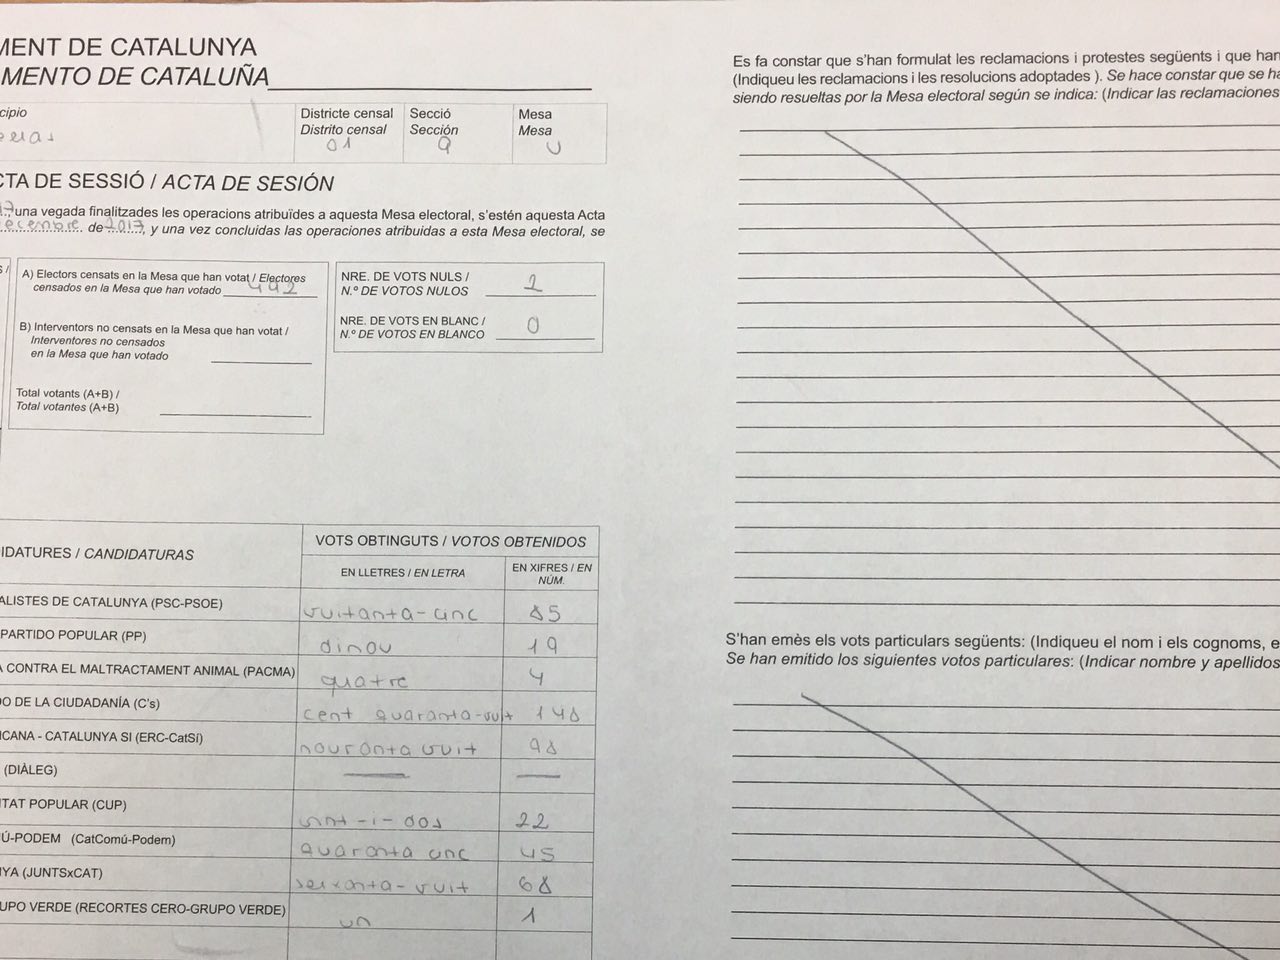 MENT DE CATALUNYA
MENTO DE CATALUÑA
cipio
Districte censal
Distrito censal
01
Secció
Sección
9
Mesa
Mesa
U
CTA DE SESSIÓ / ACTA DE SESIÓN
una vegada finalitzades les operacions atribuïdes a aquesta Mesa electoral, s'estén aquesta Acta
ecembre de 2017, y una vez concluidas las operaciones atribuidas a esta Mesa electoral, se
A) Electors censats en la Mesa que han votat / Electores
censados en la Mesa que han votado 492
B) Interventors no censats en la Mesa que han votat /
Interventores no censados
en la Mesa que han votado
Total votants (A+B) /
Total votantes (A+B)
NRE. DE VOTS NULS /
N.º DE VOTOS NULOS 2
NRE. DE VOTS EN BLANC /
N.º DE VOTOS EN BLANCO 0
IDATURES / CANDIDATURAS
VOTS OBTINGUTS / VOTOS OBTENIDOS
EN LLETRES / EN LETRA
EN XIFRES / EN
NÚM.
ALISTES DE CATALUNYA (PSC-PSOE) vuitanta-cinc 85
PARTIDO POPULAR (PP) dinou 19
A CONTRA EL MALTRACTAMENT ANIMAL (PACMA) quatre 4
DO DE LA CIUDADANÍA (C's) cent quaranta-vuit 148
ICANA - CATALUNYA SI (ERC-CatSí) nouranta vuit 98
(DIÀLEG)
TAT POPULAR (CUP) vint-i-dos 22
Ú-PODEM (CatComú-Podem) quaranta cinc 45
NYA (JUNTSxCAT) seixanta-vuit 68
UPO VERDE (RECORTES CERO-GRUPO VERDE) un 1
Es fa constar que s'han formulat les reclamacions i protestes següents i que han
(Indiqueu les reclamacions i les resolucions adoptades ). Se hace constar que se ha
siendo resueltas por la Mesa electoral según se indica: (Indicar las reclamaciones
S'han emès els vots particulars següents: (Indiqueu el nom i els cognoms, e
Se han emitido los siguientes votos particulares: (Indicar nombre y apellidos